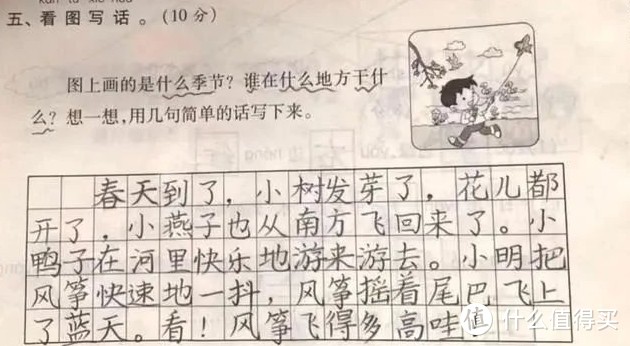 五、看图写话。(10分)
图上画的是什么季节？谁在什么地方干什
么？想一想,用几句简单的话写下来。
春天到了，小树发芽了，花儿都
开了，小燕子也从南方飞回来了。小
鸭子在河里快乐地游来游去。小明把
风筝快速地一抖，风筝摇着尾巴飞上
了蓝天。看！风筝飞得多高哇
值 什么值得买